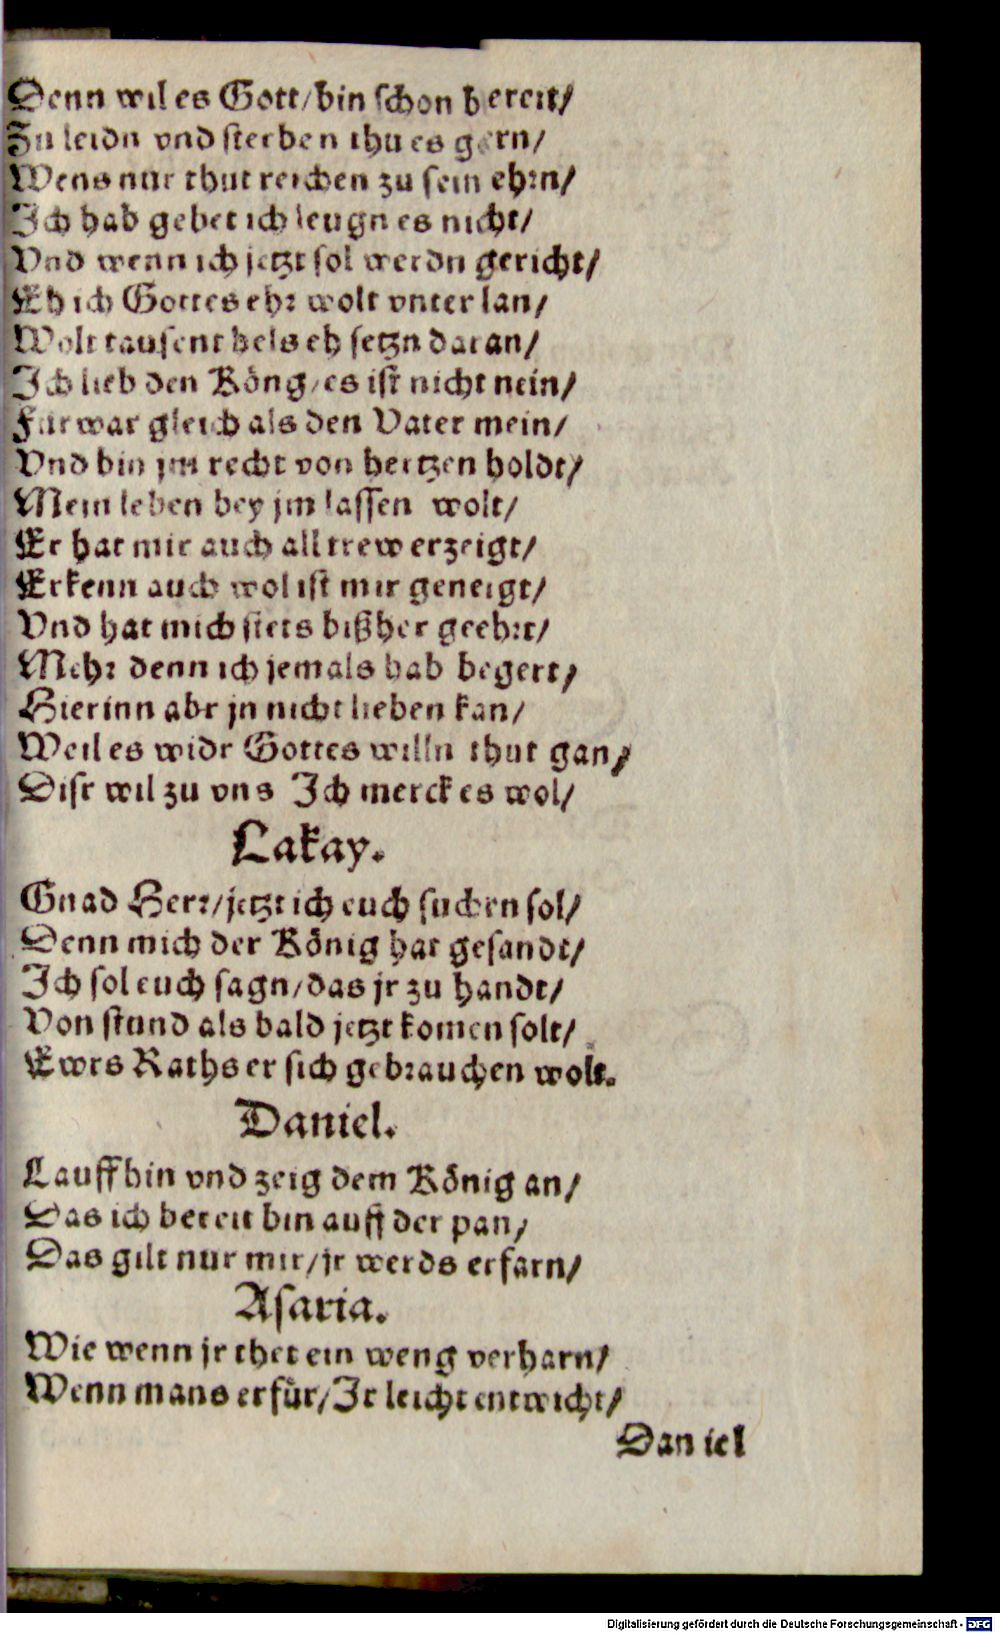 Denn wil es Gott/bin schon bereit/
Zu leidn vnd sterben thu es gern/
Wens nur thut reichen zu sein ehrn/
Ich hab gebet ich leugn es nicht/
Vnd wenn ich jetzt sol werdn gericht/
Eh ich Gottes ehr wolt vnter lan/
Wolt tausent hels eh setzn daran/
Ich lieb den Köng/es ist nicht nein/
Fürwar gleich als den Vater mein/
Vnd bin jm recht von hertzen holdt/
Mein leben bey jm lassen wolt/
Er hat mir auch all trew erzeigt/
Erkenn auch wol ist mir geneigt/
Vnd hat mich stets bißher geehrt/
Mehr denn ich jemals hab begert/
Hierinn abr jn nicht lieben kan/
Weil es widr Gottes willn thut gan/
Disr wil zu vns Ich merck es wol/
Lakay.
Gnad Herr/jetzt ich euch suchen sol/
Denn mich der König hat gesandt/
Ich sol euch sagn/das jr zu handt/
Von stund als bald jetzt komen solt/
Ewrs Raths er sich gebrauchen wolt.
Daniel.
Lauff hin vnd zeig dem König an/
Das ich bereit bin auff der pan/
Das gilt nur mir/jr werds erfarn/
Asaria.
Wie wenn jr thet ein weng verharn/
Wenn mans erfür/Ir leicht entwicht/
Daniel
Digitalisierung gefördert durch die Deutsche Forschungsgemeinschaft - DFG